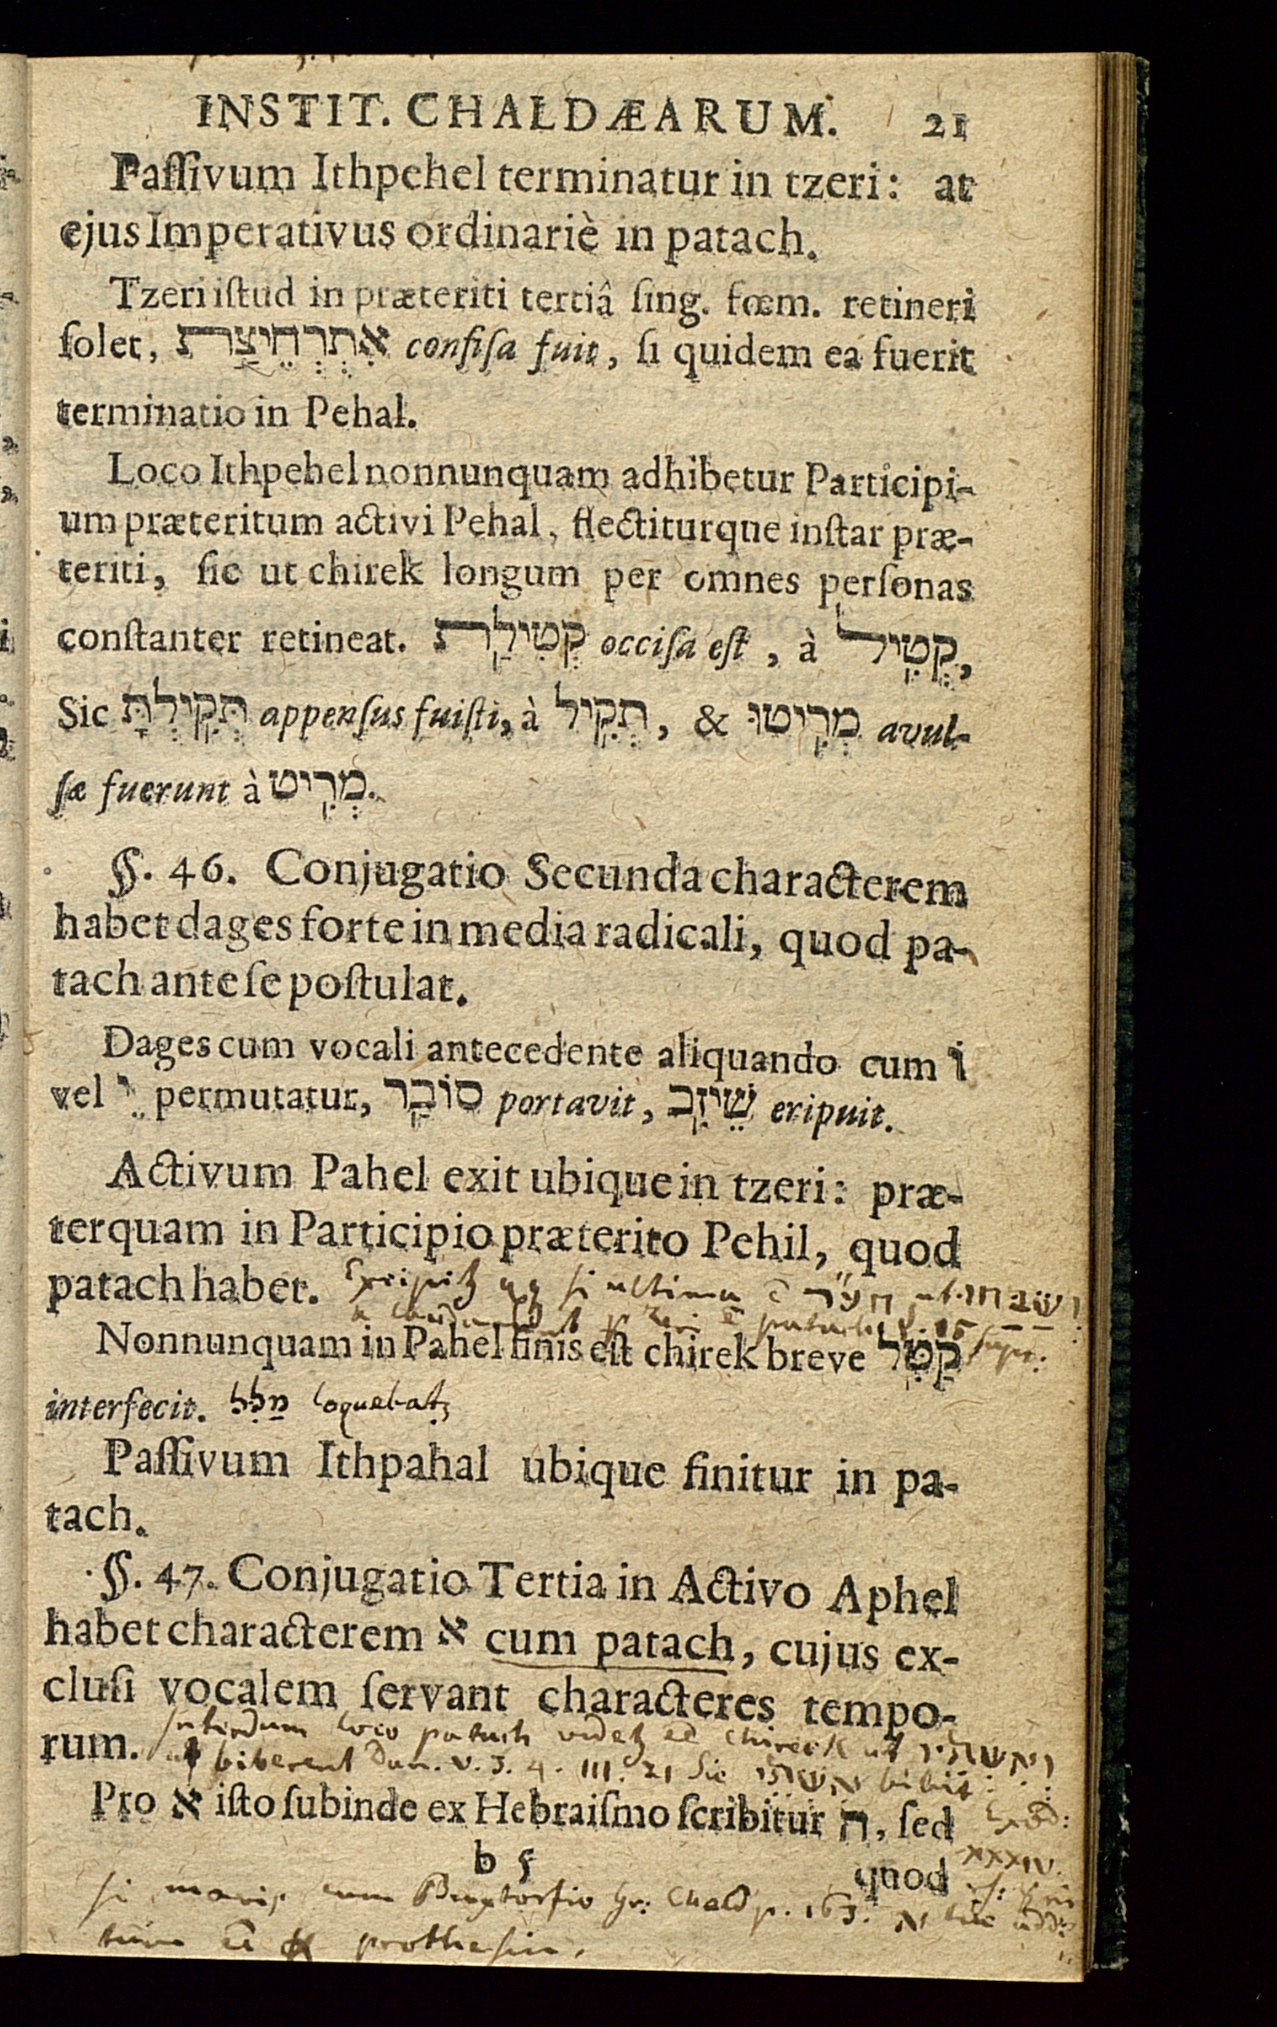 INSTIT. CHALDÆARUM. 21
Paſſivum Ithpehel terminatur in tzeri: at
ejus Imperativus ordinariè in patach.
Tzeri iſtud in præteriti tertiâ ſing. fœm. retineri
ſolet, אִתְרְחֵיצַת confiſa fuit, ſi quidem ea fuerit
terminatio in Pehal.
Loco Ithpehel nonnunquam adhibetur Participi-
um præteritum activi Pehal, flectiturque inſtar præ-
teriti, ſic ut chirek longum per omnes perſonas
conſtanter retineat. קְטִילַת occiſa eſt, à קְטִיל,
Sic תְּקִילְתָּ appenſus fuiſti, à תְקִיל, & מְרִיטוּ avul-
ſæ fuerunt à מְרִיט.
§. 46. Conjugatio Secunda characterem
habet dages forte in media radicali, quod pa-
tach ante ſe poſtulat.
Dages cum vocali antecedente aliquando cum וֹ
vel ֵי permutatur, סוֹבַר portavit, שֵׁיזַב eripuit.
Activum Pahel exit ubique in tzeri: præ-
terquam in Participio præterito Pehil, quod
patach habet. si ultima
Nonnunquam in Pahel finis eſt chirek breve קַטִּל
interfecit. מַלִּל loquebat
Paſſivum Ithpahal ubique finitur in pa-
tach.
§. 47. Conjugatio Tertia in Activo Aphel
habet characterem א cum patach, cujus ex-
cluſi vocalem ſervant characteres tempo-
rum. Interdum loco patach chireck ut
biberent Dan. v. 3. 4. III. 21 Sic bibit
Pro א iſto ſubinde ex Hebraiſmo ſcribitur ה, ſed
b 5
quod
XXXIV.
si mavis cum Buxtorfio Gr: Chald p. 163.
prothesin.